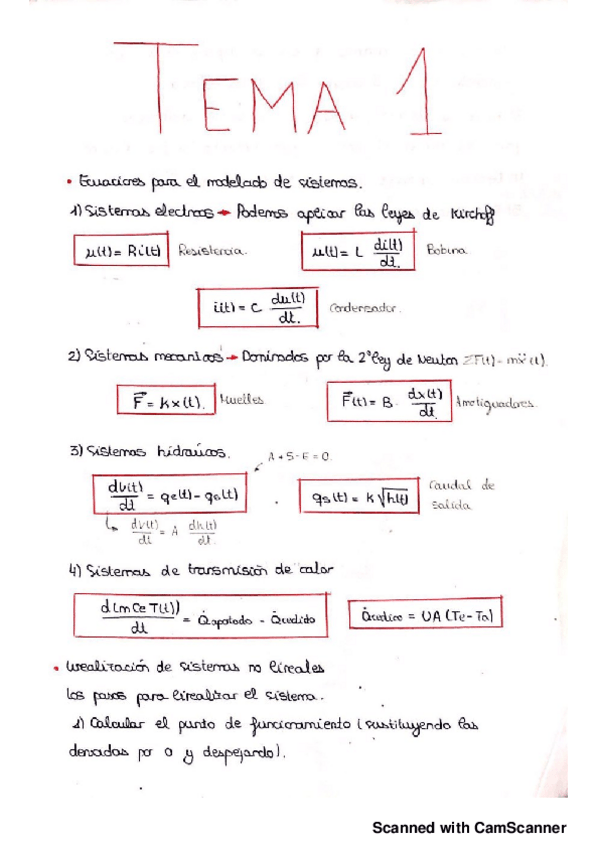 TEMA 1
• Ecuaciones para el modelado de sistemas.
1) Sistemas electricos → Podemos aplicar las leyes de Kirchoff
u(t) = R i(t) Resistencia. u(t) = L di(t)/dt. Bobina.
i(t) = C du(t)/dt. Condensador.
2) Sistemas mecanicos → Dominados por la 2ª ley de Newton ΣF(t) = mẍ(t).
F⃗ = K x (t). Muelles. F⃗(t) = B · dx(t)/dt. Amotiguadores.
3) Sistemas hidraúicos. A + S - E = 0.
dv(t)/dt = qe(t) - qs(t) qs(t) = K √h(t) Caudal de
salida.
dv(t)/dt = A dh(t)/dt.
4) Sistemas de transmisión de calor
d(m Ce T(t))/dt = Q̇apotado - Q̇cedido Q̇cedido = UA (Te - Ta)
• Linealización de sistemas no lineales
Los pasos para linealizar el sistema.
1) Calcular el punto de funcionamiento (sustituyendo las
derivadas por 0 y despejando).
Scanned with CamScanner